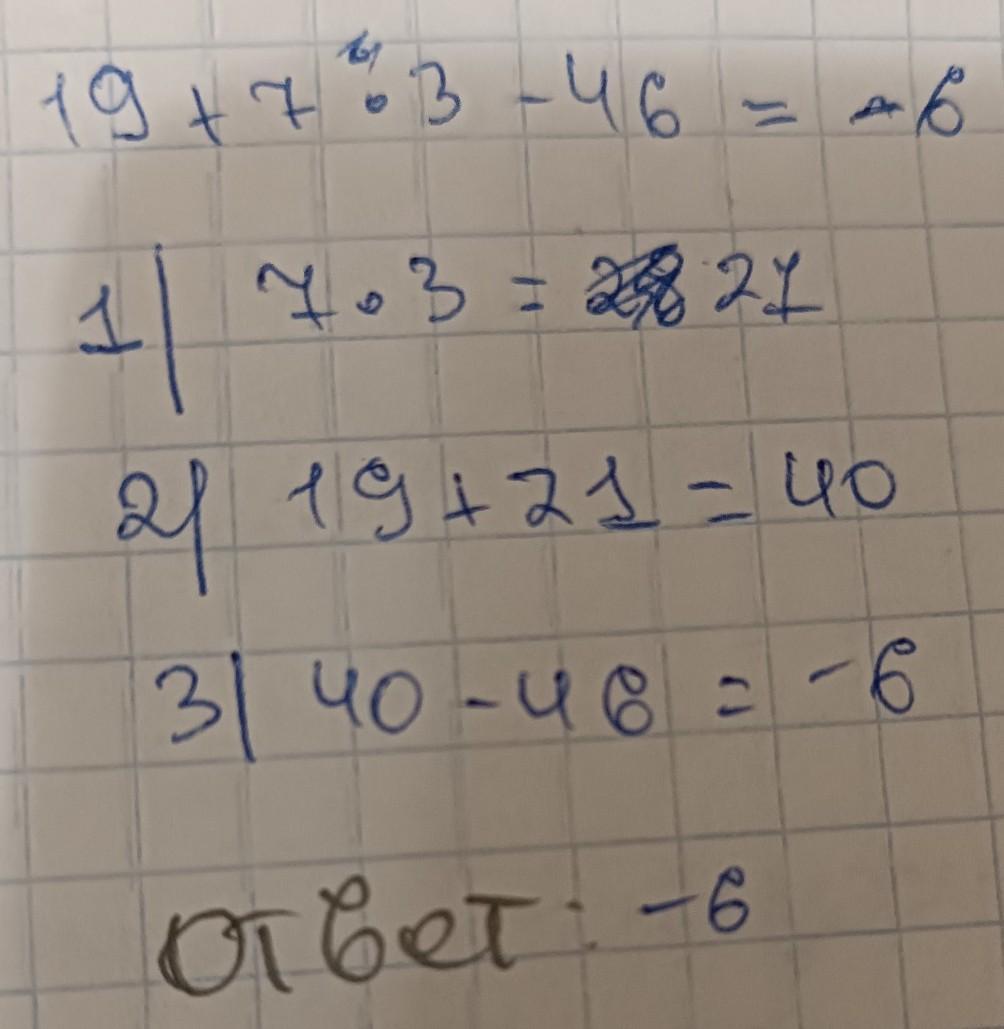 19 + 7 · 3 - 46 = -6
1) 7 · 3 = 21
2) 19 + 21 = 40
3) 40 - 46 = -6
Ответ: -6